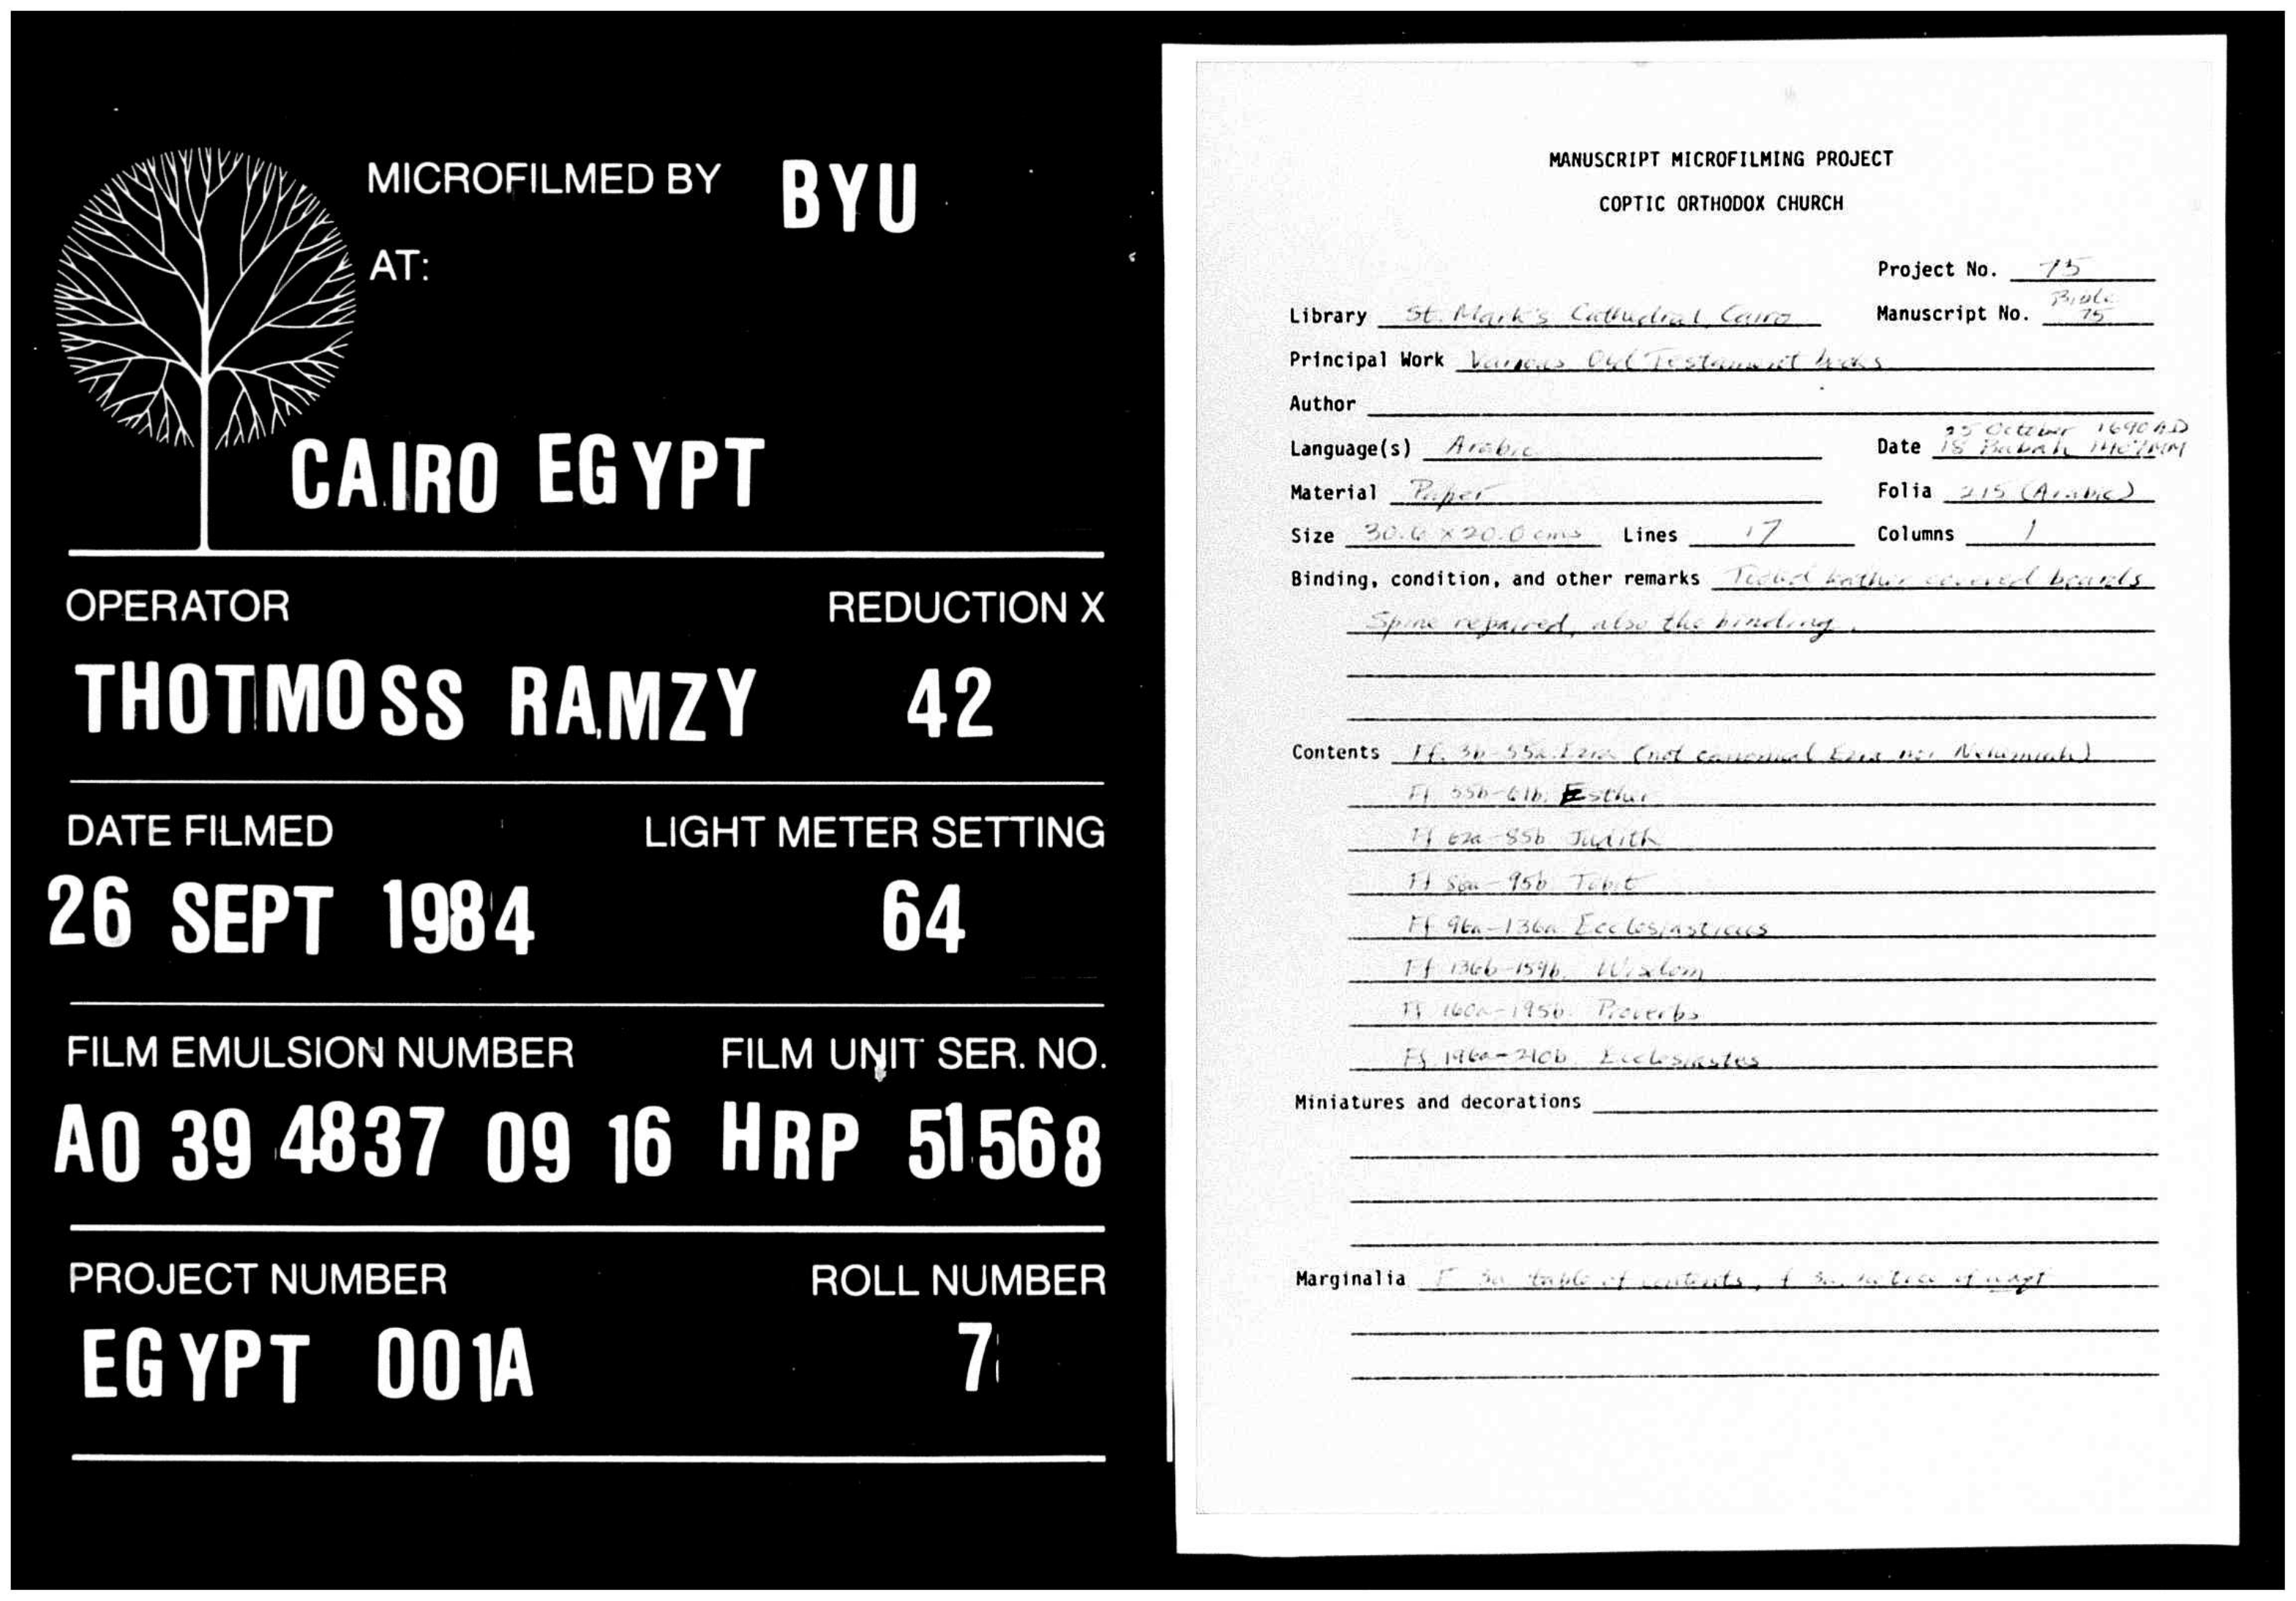 MICROFILMED BY BYU
AT:
CAIRO EGYPT
OPERATOR REDUCTION X
THOTMOSS RAMZY 42
DATE FILMED LIGHT METER SETTING
26 SEPT 1984 64
FILM EMULSION NUMBER FILM UNIT SER. NO.
A0 39 4837 09 16 HRP 51568
PROJECT NUMBER ROLL NUMBER
EGYPT 001A 7
MANUSCRIPT MICROFILMING PROJECT
COPTIC ORTHODOX CHURCH
Project No. 75
Library St. Mark's Cathedral, Cairo Manuscript No. Bible 75
Principal Work Various Old Testament books
Author
25 October 1690 AD
Language(s) Arabic Date 18 Babah 1407 MM
Material Paper Folia 215 (Arabic)
Size 30.6 x 20.0 cms Lines 17 Columns 1
Binding, condition, and other remarks Tooled leather covered boards
Spine repaired, also the binding.
Contents Ff. 3b-55a Ezra (not canonical Ezra nor Nehemiah)
Ff 55b-61b. Esther
Ff 62a-85b Judith
Ff 86a-95b Tobit
Ff 96a-136a Ecclesiasticus
Ff 136b-159b. Wisdom
Ff 160a-195b. Proverbs
Ff 196a-210b. Ecclesiastes
Miniatures and decorations
Marginalia F 3a table of contents, f 3a. notice of waqf